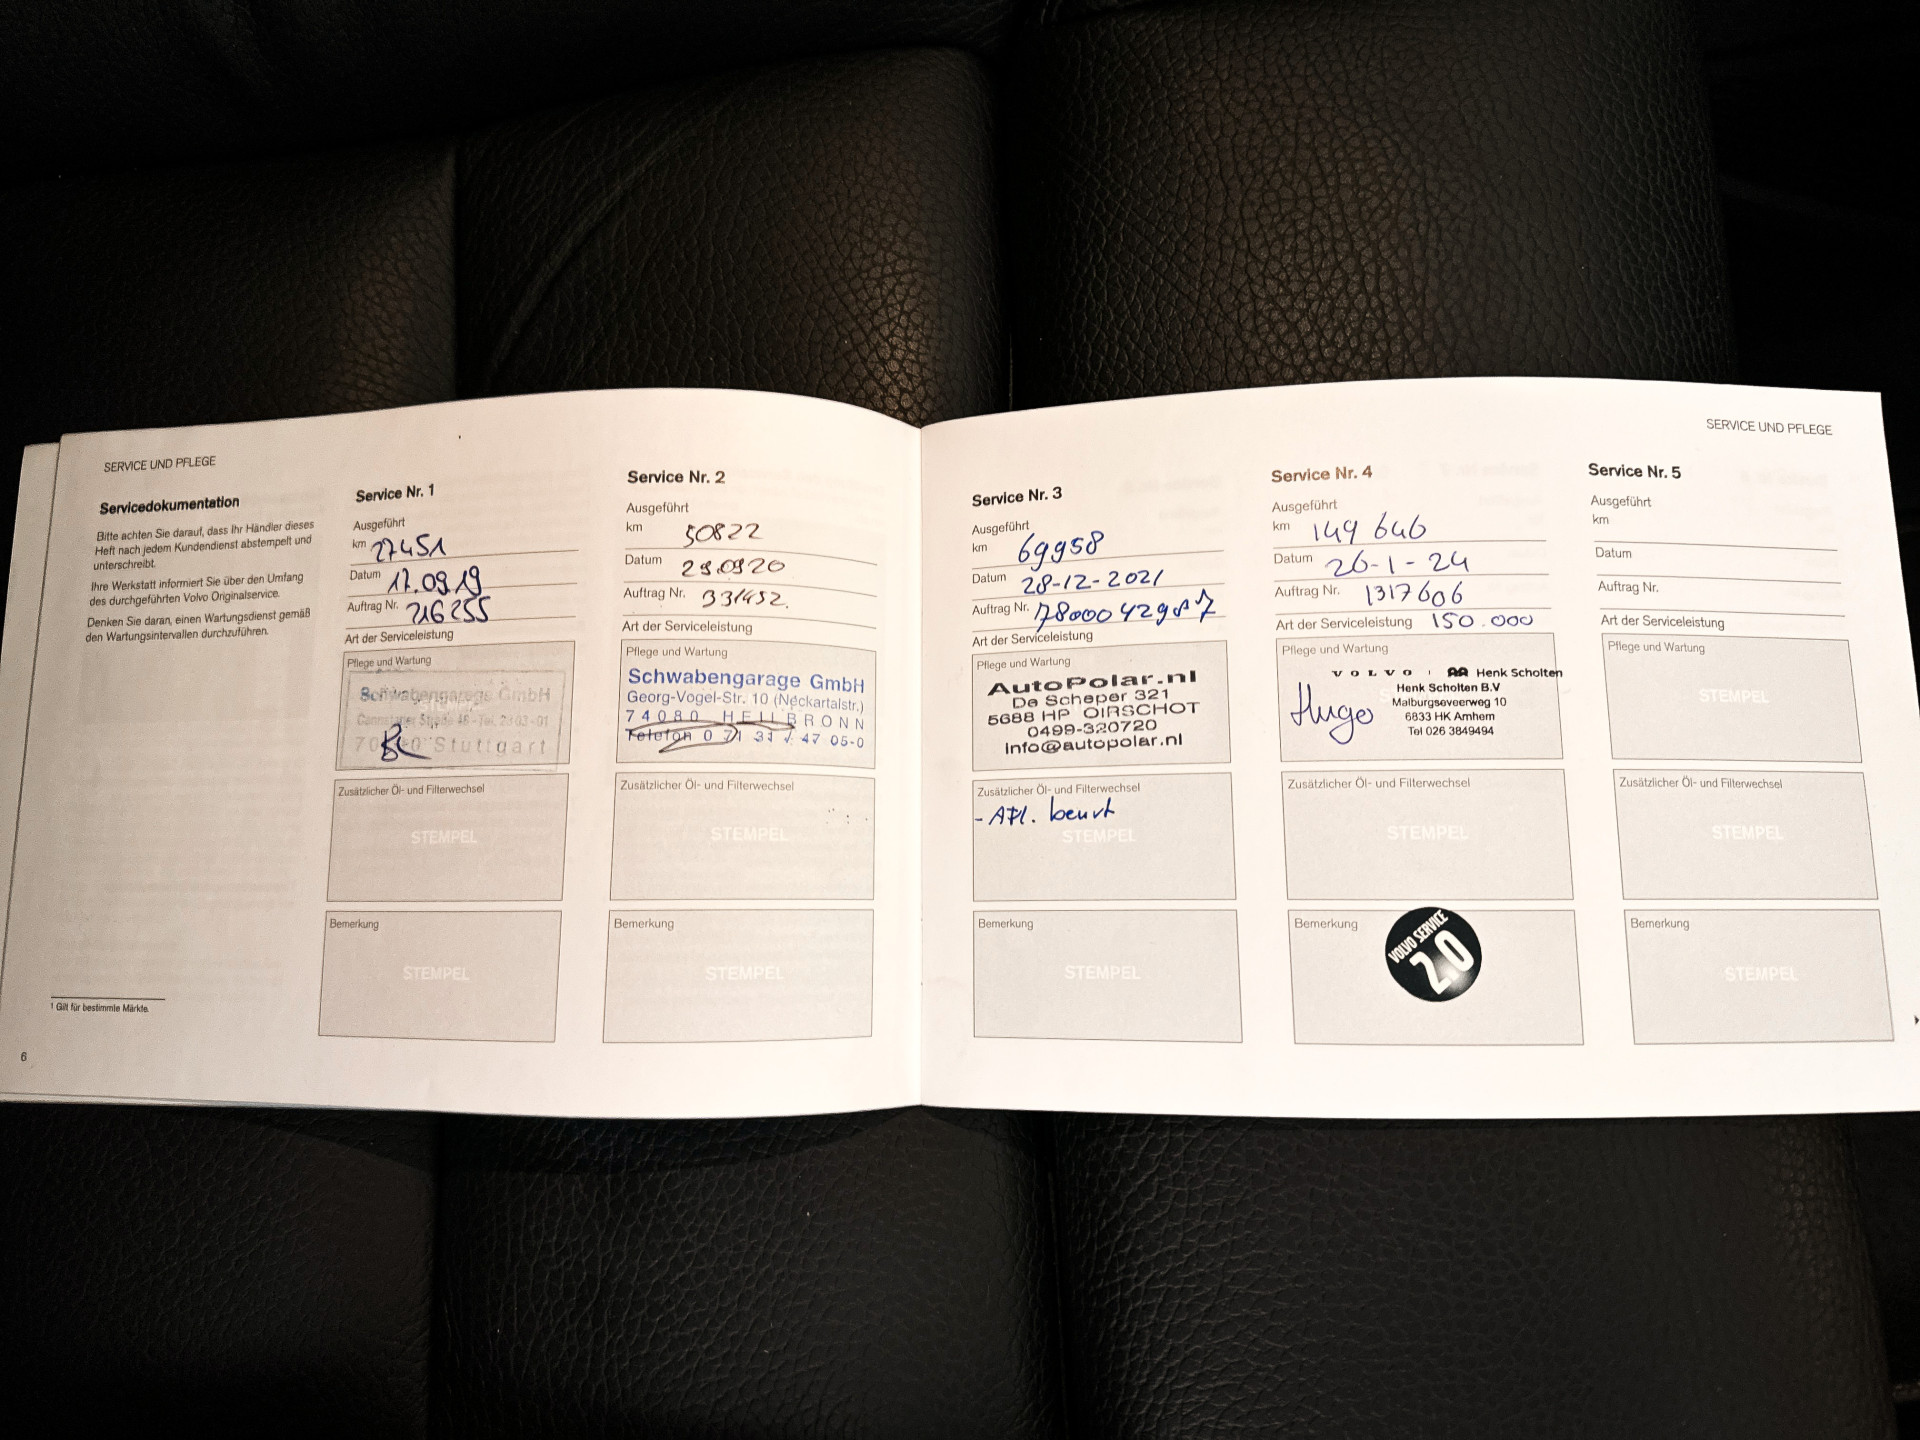 SERVICE UND PFLEGE
Servicedokumentation
Bitte achten Sie darauf, dass Ihr Händler dieses
Heft nach jedem Kundendienst abstempelt und
unterschreibt.
Ihre Werkstatt informiert Sie über den Umfang
des durchgeführten Volvo Originalservice.
Denken Sie daran, einen Wartungsdienst gemäß
den Wartungsintervallen durchzuführen.
1 Gilt für bestimmte Märkte.
6
Service Nr. 1
Ausgeführt
km 27451
Datum 17.09.19
Auftrag Nr. 216255
Art der Serviceleistung
Pflege und Wartung
Schwabengarage GmbH
Stuttgart
Zusätzlicher Öl- und Filterwechsel
STEMPEL
Bemerkung
STEMPEL
Service Nr. 2
Ausgeführt
km 50822
Datum 29.09.20
Auftrag Nr. 331452.
Art der Serviceleistung
Pflege und Wartung
Schwabengarage GmbH
Georg-Vogel-Str. 10 (Neckartalstr.)
74080 HEILBRONN
Telefon 0 71 31 / 47 05-0
Zusätzlicher Öl- und Filterwechsel
STEMPEL
Bemerkung
STEMPEL
SERVICE UND PFLEGE
Service Nr. 3
Ausgeführt
km 69958
Datum 28-12-2021
Auftrag Nr.
Art der Serviceleistung
Pflege und Wartung
AutoPolar.nl
De Scheper 321
5688 HP OIRSCHOT
0499-320720
info@autopolar.nl
Zusätzlicher Öl- und Filterwechsel
- Afl. beurt
STEMPEL
Bemerkung
STEMPEL
Service Nr. 4
Ausgeführt
km 149 646
Datum 26-1-24
Auftrag Nr. 1317606
Art der Serviceleistung 150.000
Pflege und Wartung
VOLVO Henk Scholten
Henk Scholten B.V
Malburgseveerweg 10
6833 HK Arnhem
Tel 026 3849494
Hugo
Zusätzlicher Öl- und Filterwechsel
STEMPEL
Bemerkung
VOLVO SERVICE
2.0
Service Nr. 5
Ausgeführt
km
Datum
Auftrag Nr.
Art der Serviceleistung
Pflege und Wartung
STEMPEL
Zusätzlicher Öl- und Filterwechsel
STEMPEL
Bemerkung
STEMPEL